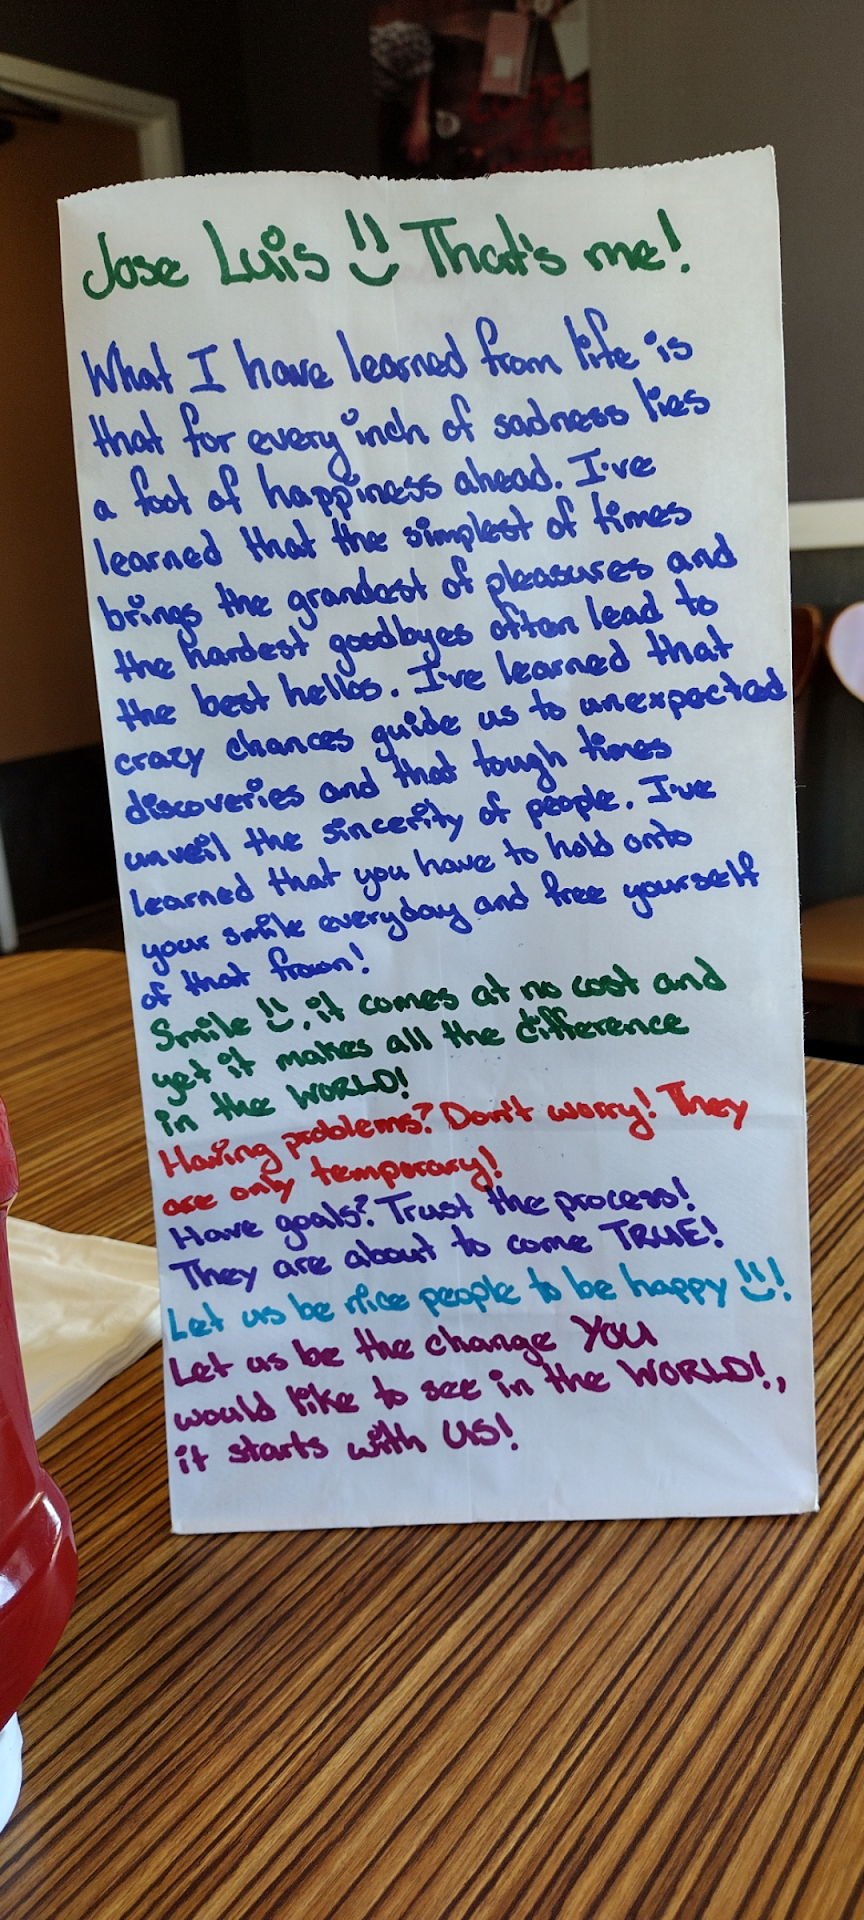 Jose Luis :) That's me!
What I have learned from life is
that for every inch of sadness lies
a foot of happiness ahead. I've
learned that the simplest of times
brings the grandest of pleasures and
the hardest goodbyes often lead to
the best hellos. I've learned that
crazy chances guide us to unexpected
discoveries and that tough times
unveil the sincerity of people. I've
learned that you have to hold onto
your smile everyday and free yourself
of that frown!
Smile :), it comes at no cost and
yet it makes all the difference
in the WORLD!
Having problems? Don't worry! They
are only temporary!
Have goals? Trust the process!
They are about to come TRUE!
Let us be nice people to be happy :)!
Let us be the change YOU
would like to see in the WORLD!,
it starts with US!